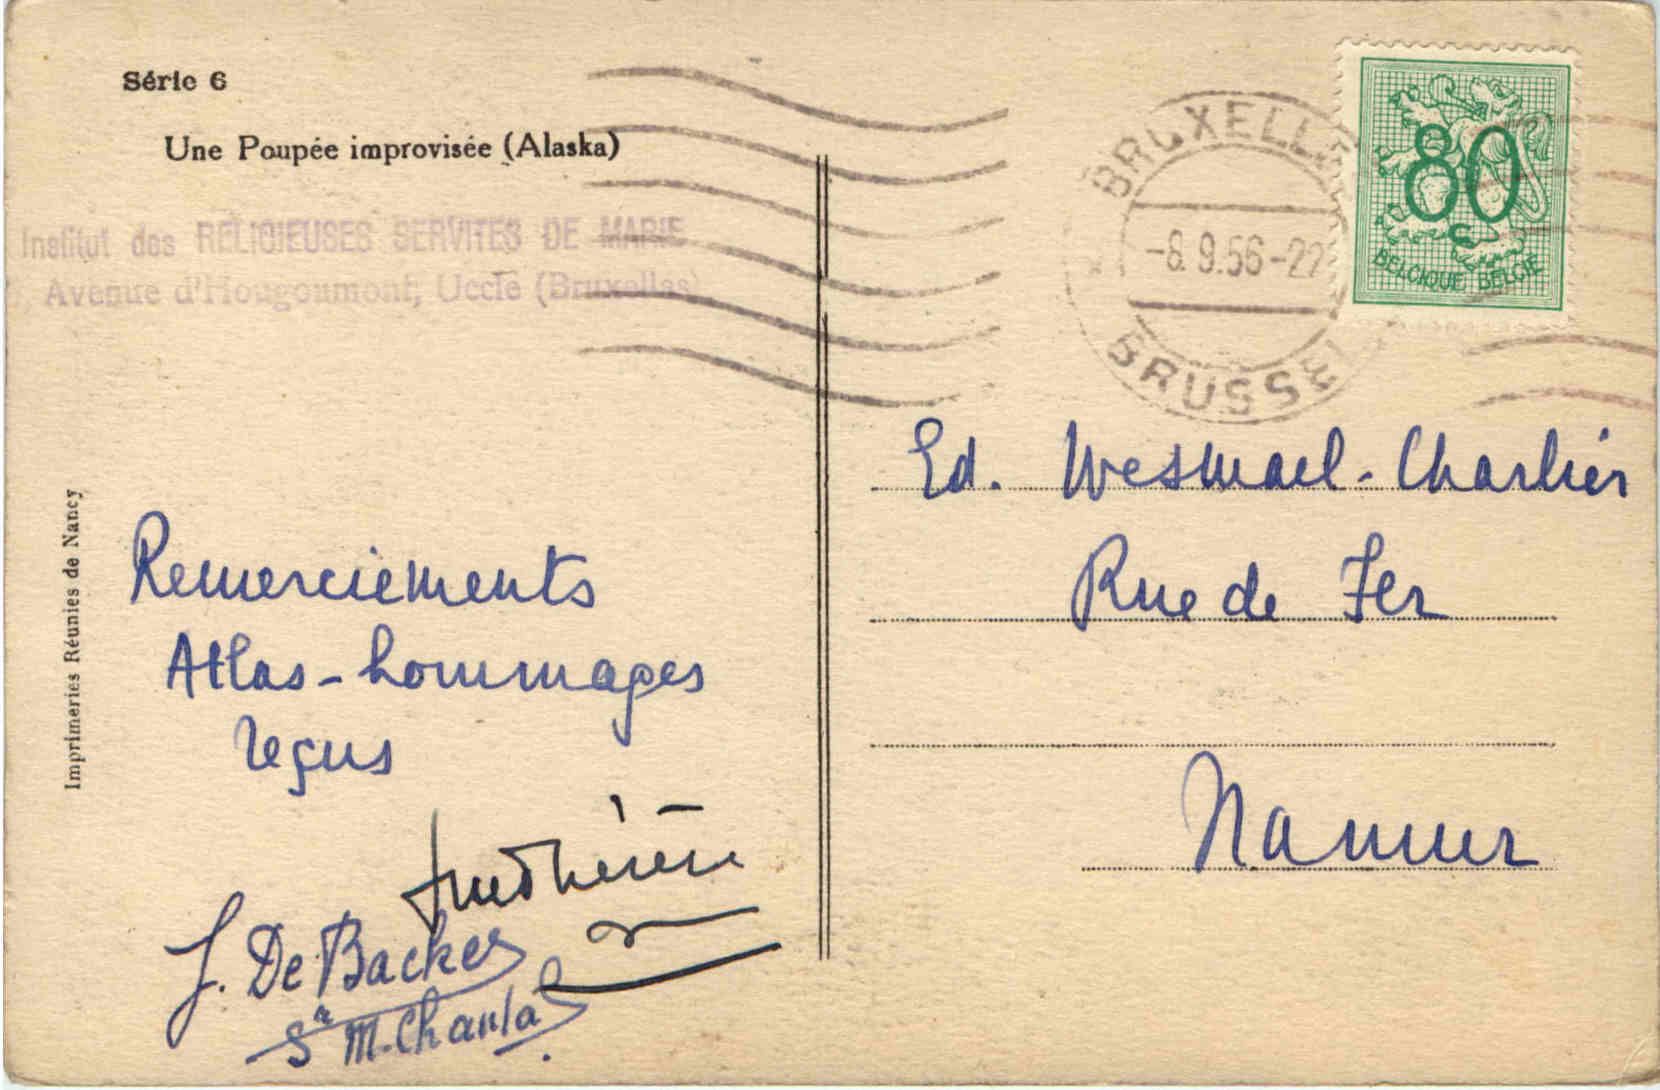 Série 6
Une Poupée improvisée (Alaska)
Institut des RELIGIEUSES SERVITES DE MARIE
Avenue d'Hougoumont, Uccle (Bruxelles)
Imprimeries Réunies de Nancy
Remerciements
Atlas-hommages
reçus
J. De Backer
Sr M. Chantal
BRUXELLE
-8.9.56-22
BRUSSEL
80
BELGIQUE BELGIË
Ed. Wesmael-Charlier
Rue de Fer
Namur